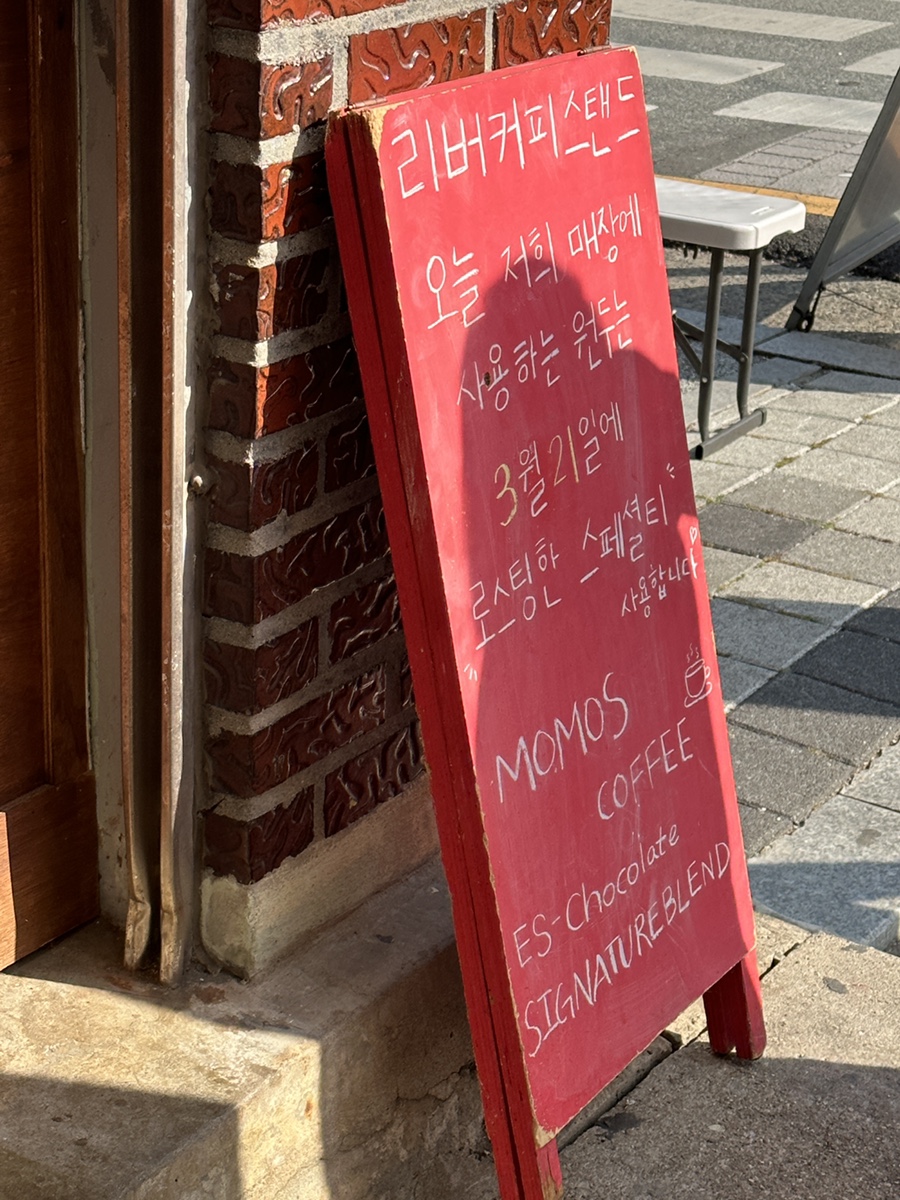 리버커피스탠드
오늘 저희 매장에
사용하는 원두는
3월21일에
로스팅한 스페셜티
사용합니다
MOMOS
COFFEE
ES-Chocolate
SIGNATUREBLEND